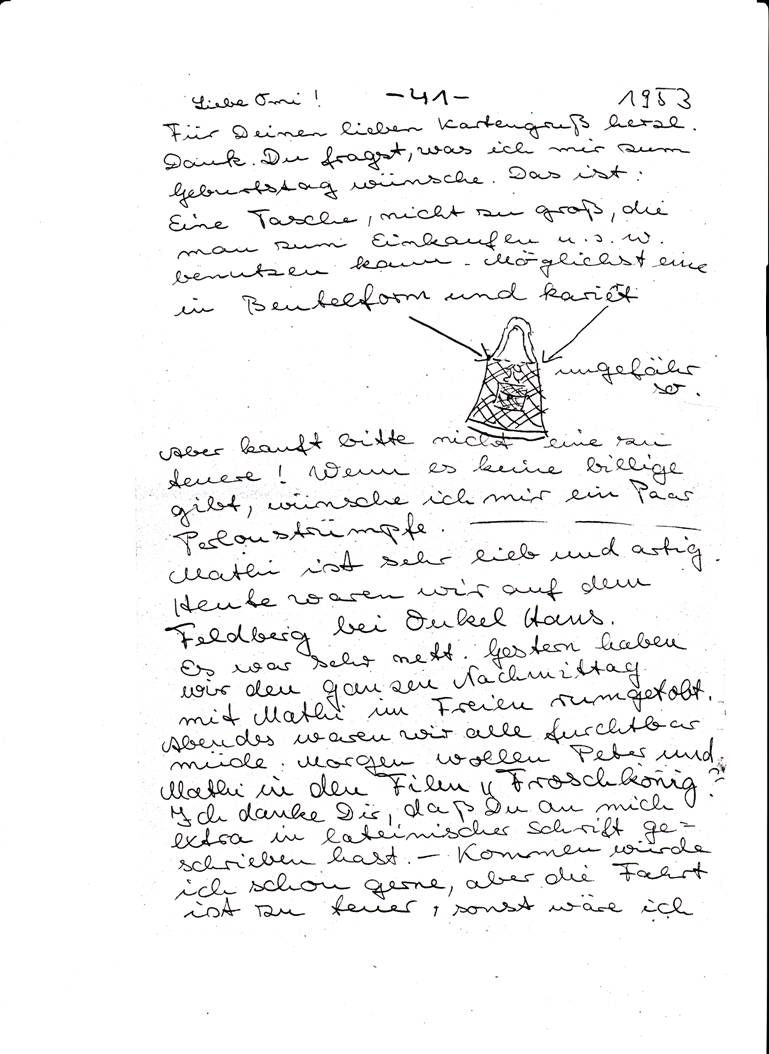 Liebe Omi! -41- 1953
Für Deinen lieben Kartengruß herzl.
Dank. Du fragst, was ich mir zum
Geburtstag wünsche. Das ist:
Eine Tasche, nicht zu groß, die
man zum Einkaufen u.s.w.
benutzen kann. Möglichst eine
in Beutelform und kariert
ungefähr
so.
Aber kauft bitte nicht eine zu
teuere! Wenn es keine billige
gibt, wünsche ich mir ein Paar
Perlonstrümpfe.
Mathi ist sehr lieb und artig.
Heute waren wir auf dem
Feldberg bei Onkel Hans.
Es war sehr nett. Gestern haben
wir den ganzen Nachmittag
mit Mathi im Freien rumgetobt.
Abends waren wir alle furchtbar
müde. Morgen wollen Peter und
Mathi in den Film „Froschkönig"
Ich danke Dir, daß Du an mich
extra in lateinischer Schrift ge=
schrieben hast. – Kommen würde
ich schon gerne, aber die Fahrt
ist zu teuer, sonst wäre ich